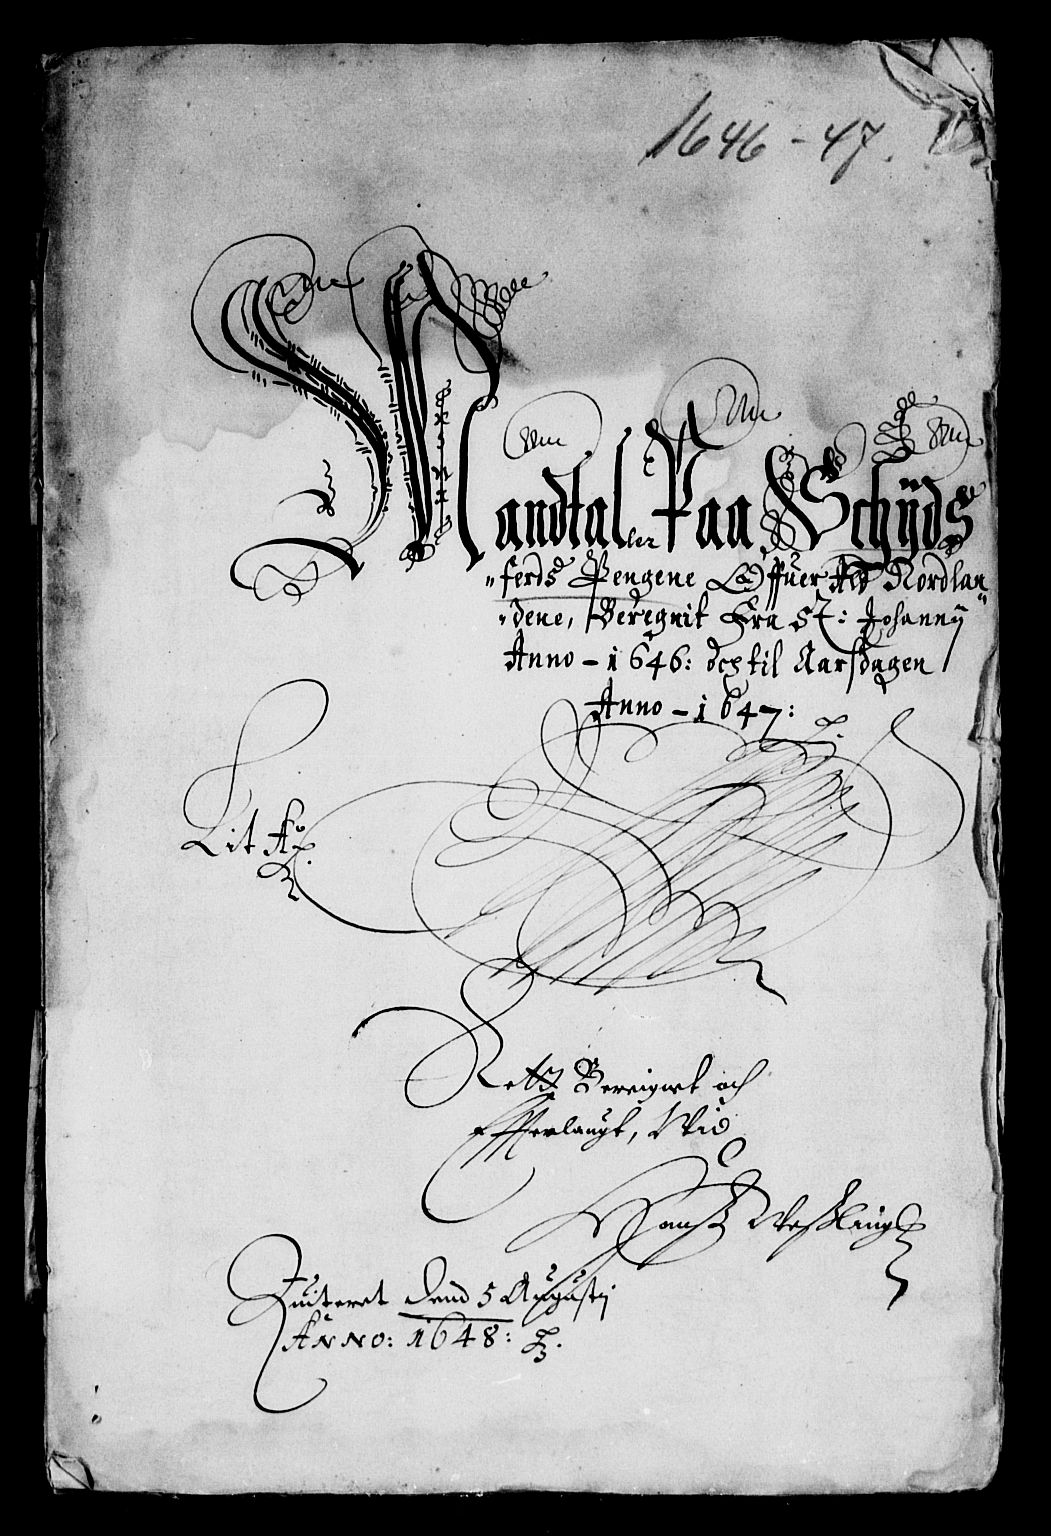 1646 - 47.
Mandtaller Paa Schÿds
"ferds Pengene Offuer Ald Nordlan"
"dene, Beregnit Fra St: Johannÿ
Anno - 1646: och til Aarsdagen
Anno - 1647:
Lit A
Rett Bereignet och
Efferlaugt, Wid
Hansz Weszling
Quiteret Dend 5 Augustij
ANNO: 1648: